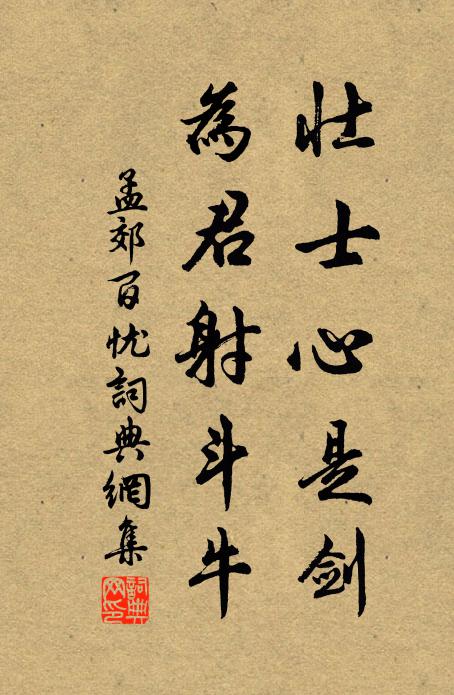 壮士心是剑
為君射斗牛
孟郊百忧詞典網集
詞典网印